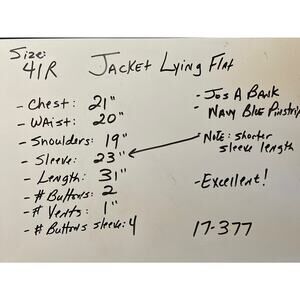 Size:
41R
Jacket Lying Flat
- Chest: 21"
- Waist: 20"
- Shoulders: 19"
- Sleeve: 23"
- Length: 31"
- # Buttons: 2
- # Vents: 1"
- # Buttons sleeve: 4
- Jos A Bank
- Navy Blue Pinstrip
- Note: shorter
sleeve length
- Excellent!
17-377